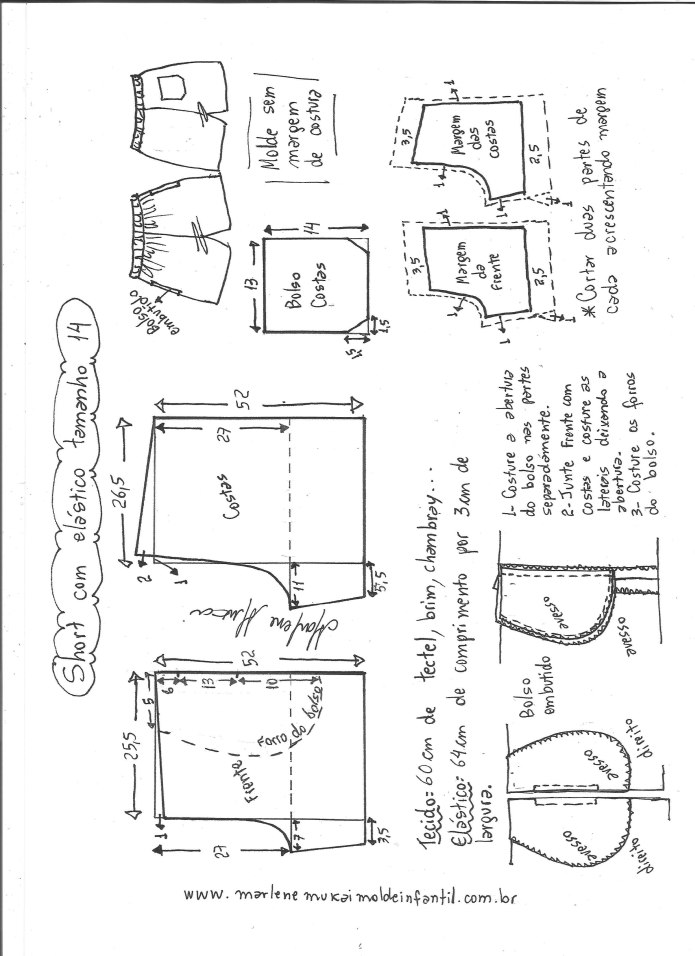 Short com elástico tamanho 14
25,5
1
27
7
3,5
5
6
13
10
52
Frente
Forro do bolso
Marlene Mukai
26,5
2
1
27
52
Costas
11
5,5
Bolso
embutido
13
14
Bolso
Costas
1,5
1,5
Molde sem
margem
de costura
Tecido: 60 cm de tectel, brim, chambray...
Elástico: 64 cm de comprimento por 3 cm de
largura.
avesso
direito
avesso
direito
Bolso
embutido
avesso
avesso
1- Costure a abertura
do bolso nas partes
separadamente.
2- Junte frente com
costas e costure as
laterais deixando a
abertura.
3- Costure os forros
do bolso.
3,5
1
1
1
1
2,5
Margem
da
frente
3,5
1
1
1
1
2,5
Margem
das
costas
*Cortar duas partes de
cada acrescentando margem
www.marlenemukaimoldeinfantil.com.br